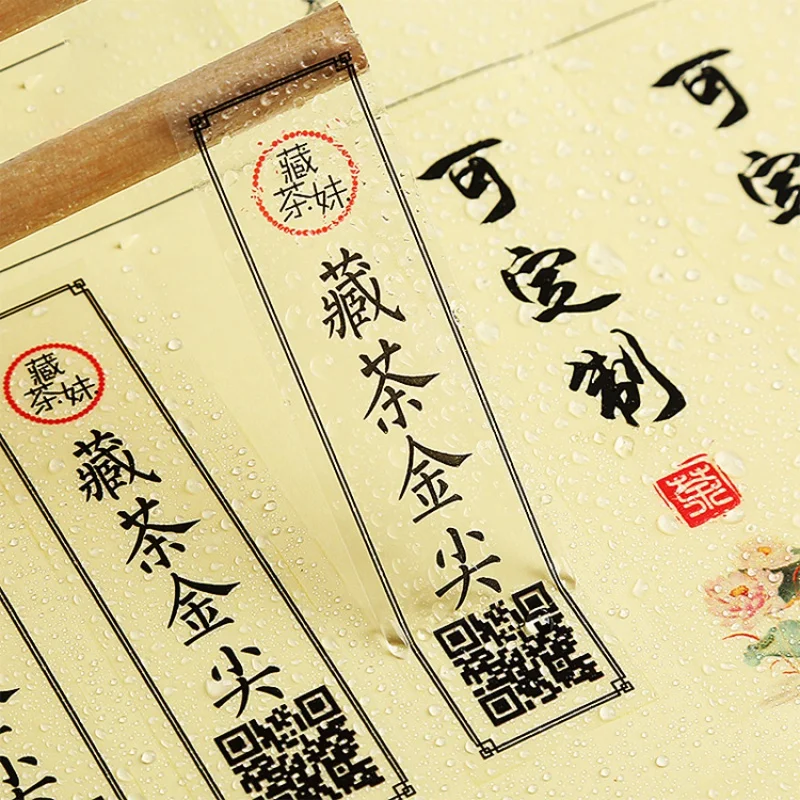 藏茶妹
藏茶金尖
藏茶妹
藏茶金尖
可定制
茶
可定